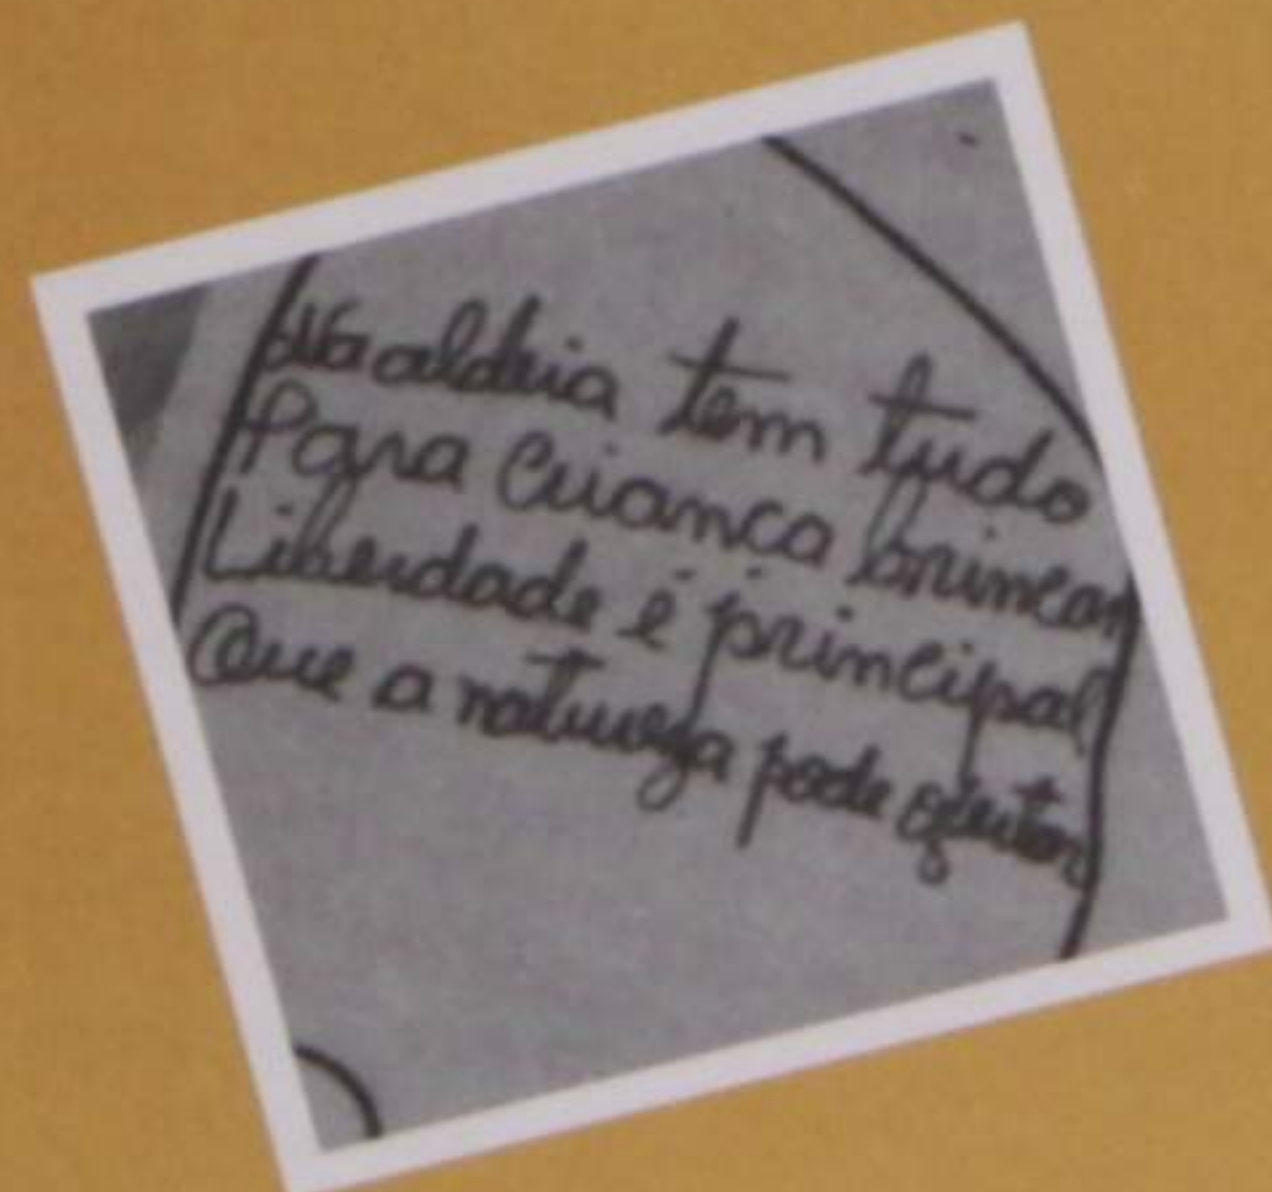 Na aldeia tem tudo
Para criança brincar
Liberdade é principal
Que a natureza pode